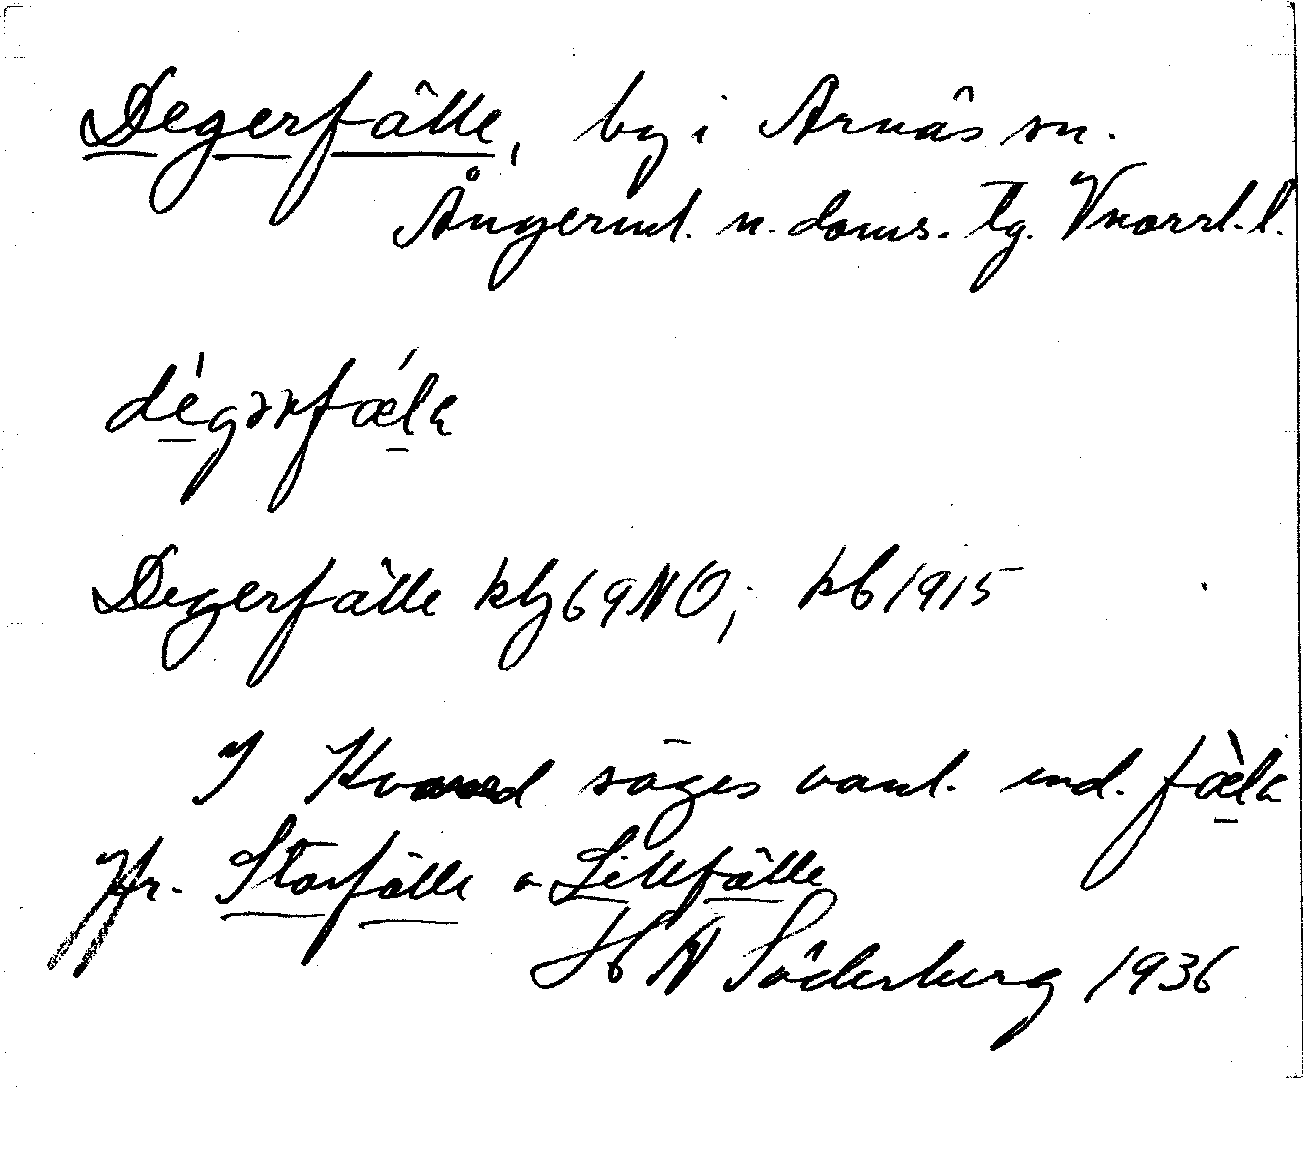 Degerfälle, by i Arnäs sn.
Ångerml. n. doms. tg. Vnorrl. l.
dégərfǽla
Degerfälle kbg 69 NO; kb 1915
I säges vanl. end. fæ̀la
Jfr. Storfälle o Lillfälle
H N Söderberg 1936